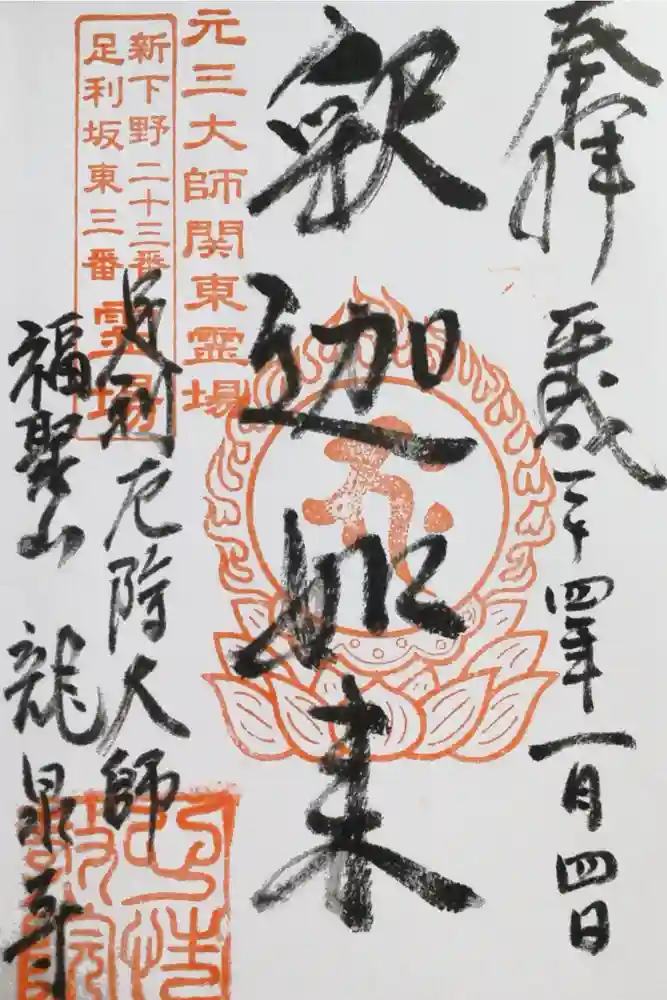 奉拝
平成二十四年一月四日
釈迦如来
元三大師関東霊場
新下野二十三番
足利坂東三番
霊場
足利厄除大師
福聚山
龍泉寺